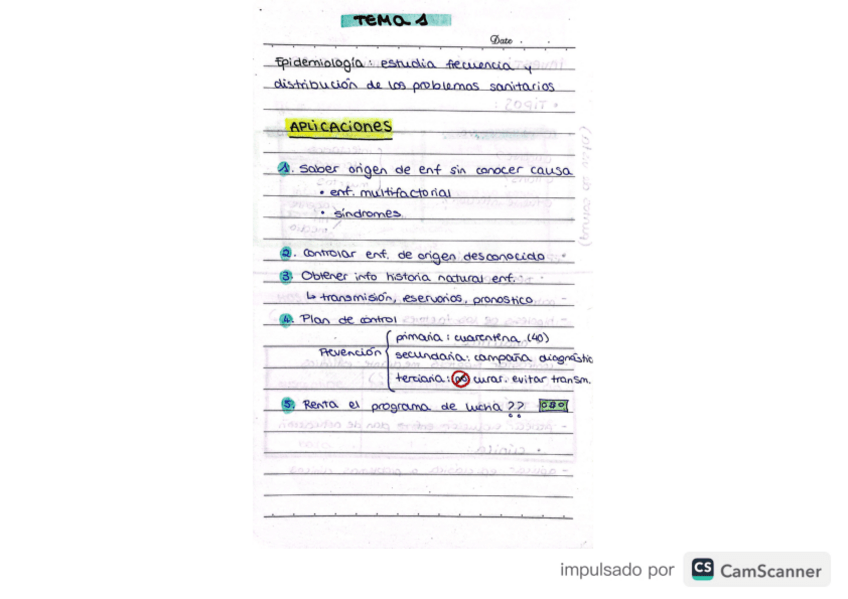 TEMA 1
Date . .
Epidemiología: estudia frecuencia y
distribución de los problemas sanitarios
APLiCACiONES
1. Saber origen de enf sin conocer causa
• enf. multifactorial
• síndromes
2. Controlar enf. de origen desconocido
3. Obtener info historia natural enf.
↳ transmisión, reservorios, pronostico
4. Plan de control
Prevención
primaria: cuarentena (40)
secundaria: campaña diagnostic
terciaria: no curar. evitar transm.
5. Renta el programa de lucha ??
impulsado por CS CamScanner